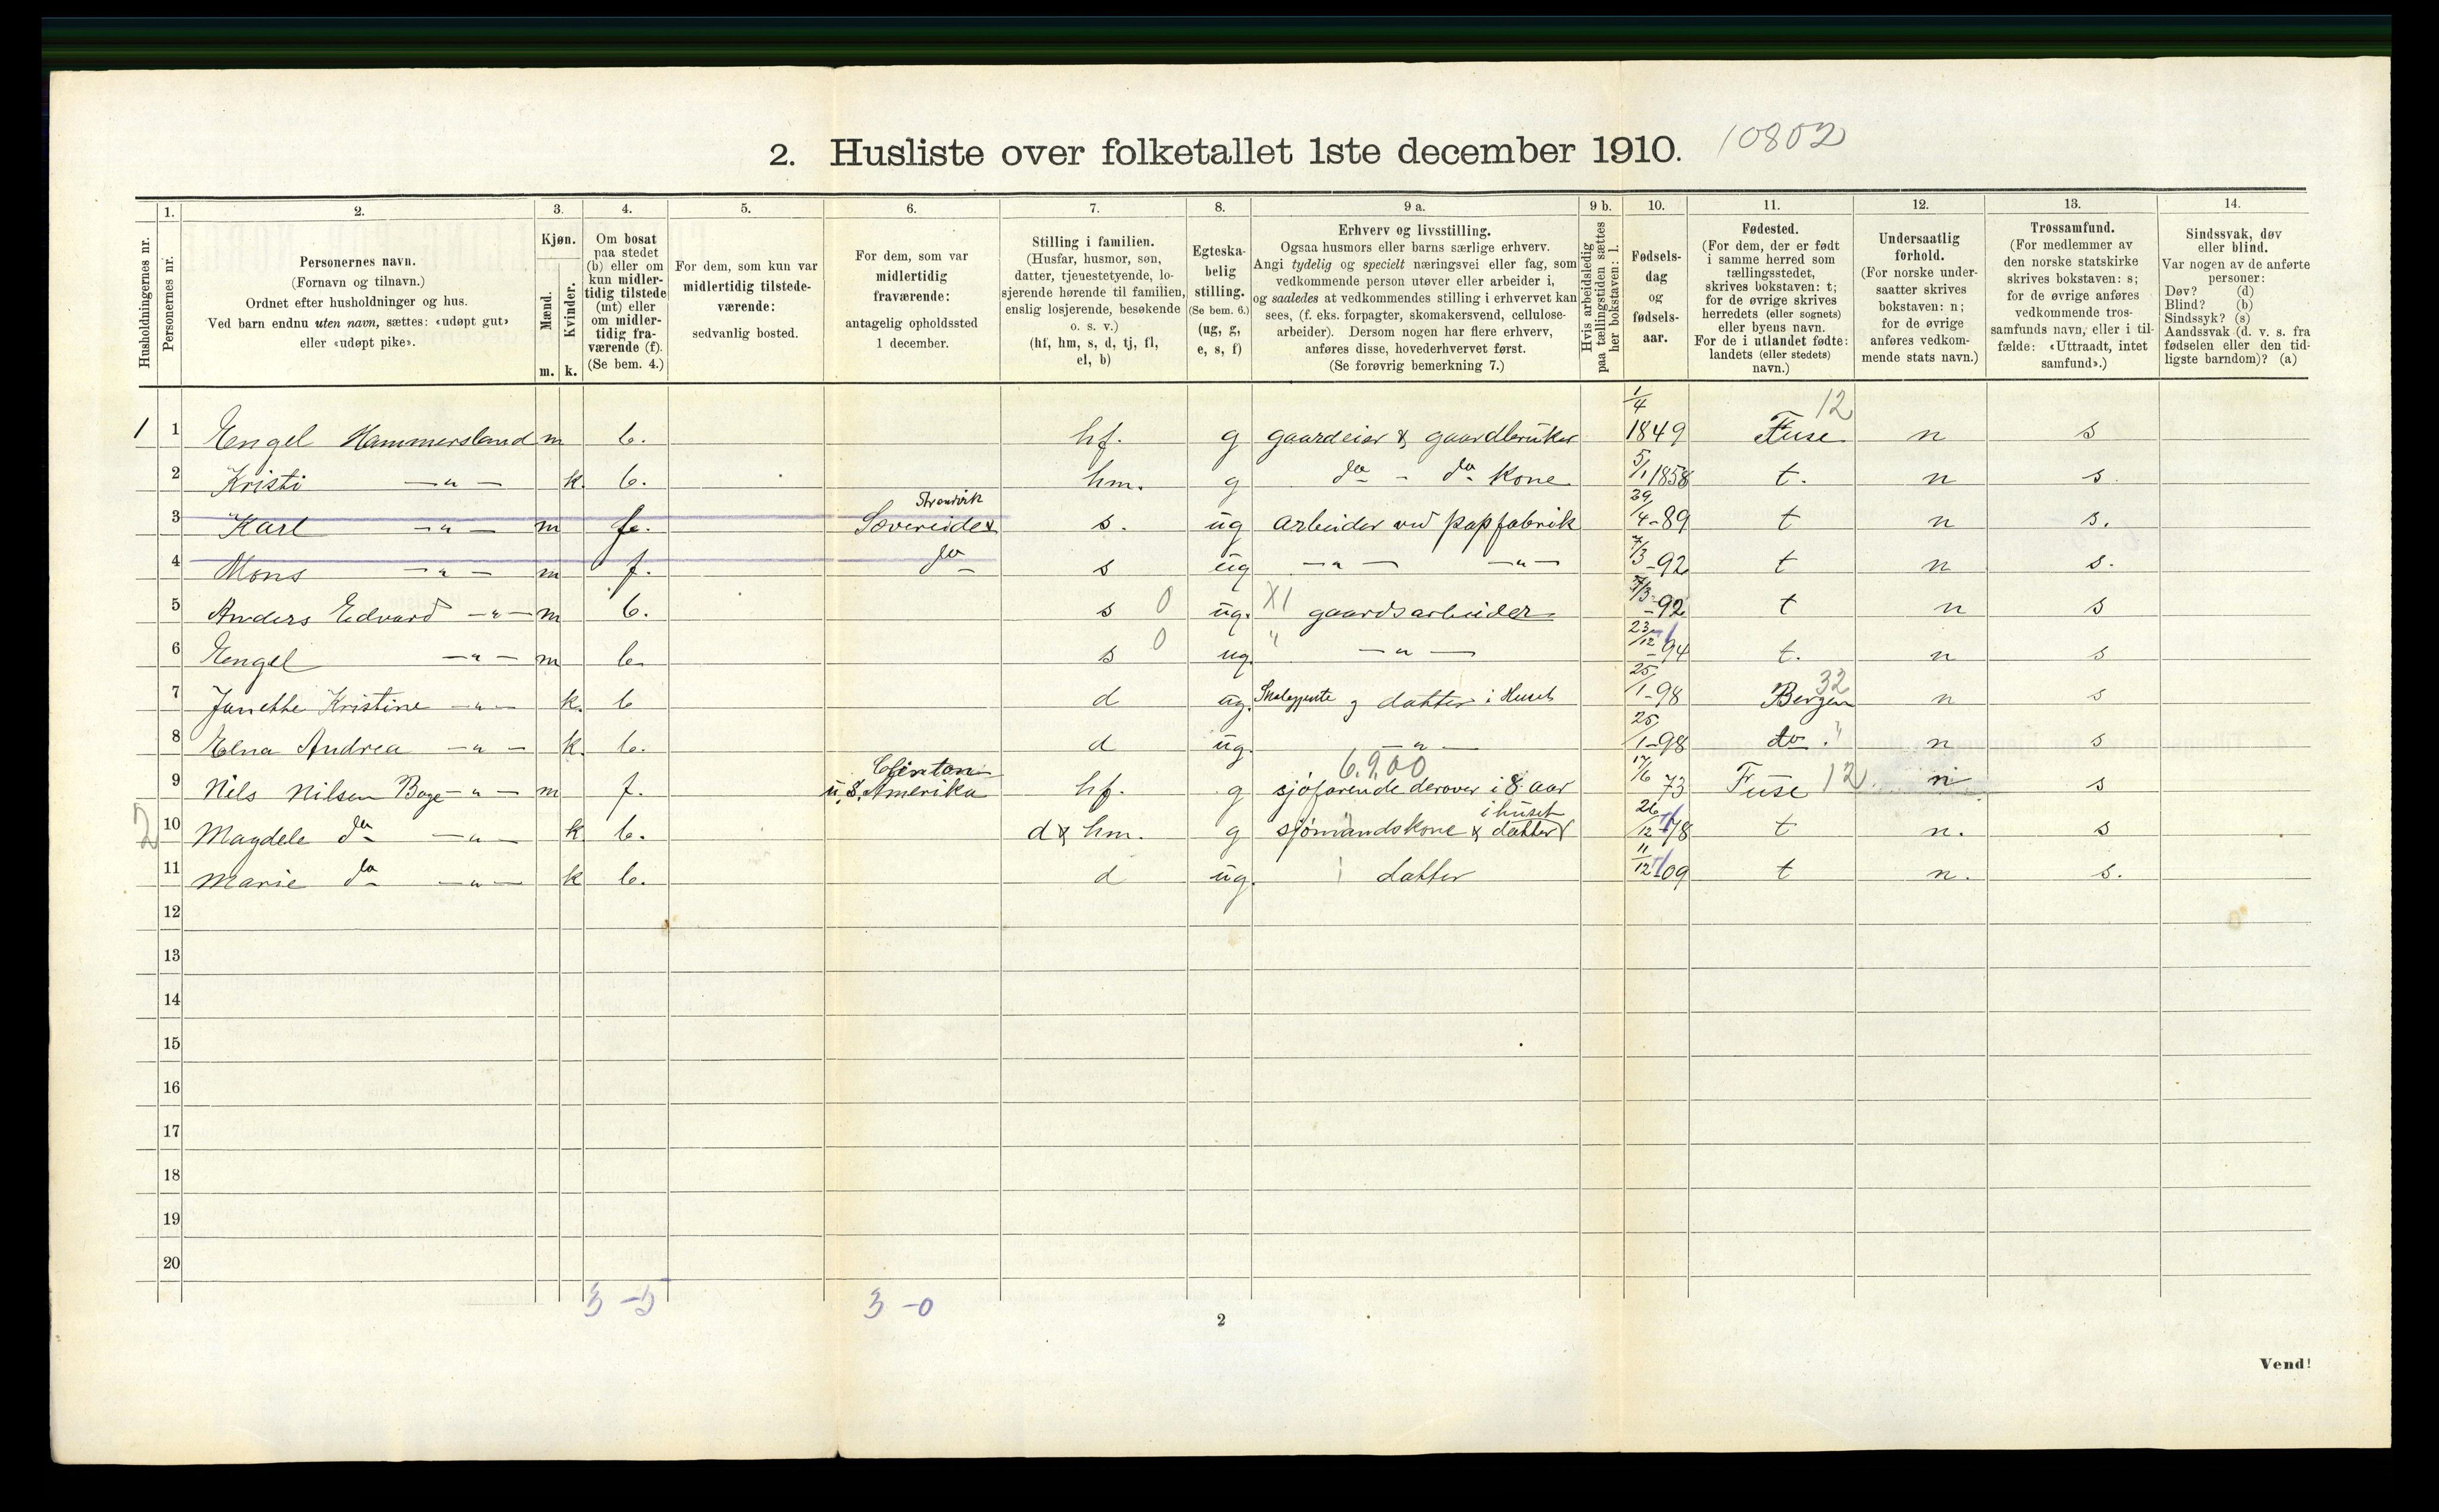 2. Husliste over folketallet 1ste december 1910. 10802
Husholdningernes nr.
1. Personernes nr.
2. Personernes navn.
(Fornavn og tilnavn.)
Ordnet efter husholdninger og hus.
Ved barn endnu uten navn, sættes: «udøpt gut»
eller «udøpt pike».
3. Kjøn.
Mænd. Kvinder.
m. k.
4. Om bosat
paa stedet
(b) eller om
kun midler-
tidig tilstede
(mt) eller
om midler-
tidig fra-
værende (f).
(Se bem. 4.)
5. For dem, som kun var
midlertidig tilstede-
værende:
sedvanlig bosted.
6. For dem, som var
midlertidig
fraværende:
antagelig opholdssted
1 december.
7. Stilling i familien.
(Husfar, husmor, søn,
datter, tjenestetyende, lo-
sjerende hørende til familien,
enslig losjerende, besøkende
o. s. v.)
(hf, hm, s, d, tj, fl,
el, b)
8. Egteska-
belig
stilling.
(Se bem. 6.)
(ug, g,
e, s, f)
9 a. Erhverv og livsstilling.
Ogsaa husmors eller barns særlige erhverv.
Angi tydelig og specielt næringsvei eller fag, som
vedkommende person utøver eller arbeider i,
og saaledes at vedkommendes stilling i erhvervet kan
sees, (f. eks. forpagter, skomakersvend, cellulose-
arbeider). Dersom nogen har flere erhverv,
anføres disse, hovederhvervet først.
(Se forøvrig bemerkning 7.)
9 b. Hvis arbeidsledig
paa tællingstiden sættes
her bokstaven: l.
10. Fødsels-
dag
og
fødsels-
aar.
11. Fødested.
(For dem, der er født
i samme herred som
tællingsstedet,
skrives bokstaven: t;
for de øvrige skrives
herredets (eller sognets)
eller byens navn.
For de i utlandet fødte:
landets (eller stedets)
navn.)
12. Undersaatlig
forhold.
(For norske under-
saatter skrives
bokstaven: n;
for de øvrige
anføres vedkom-
mende stats navn.)
13. Trossamfund.
(For medlemmer av
den norske statskirke
skrives bokstaven: s;
for de øvrige anføres
vedkommende tros-
samfunds navn, eller i til-
fælde: «Uttraadt, intet
samfund».)
14. Sindssvak, døv
eller blind.
Var nogen av de anførte
personer:
Døv? (d)
Blind? (b)
Sindssyk? (s)
Aandssvak (d. v. s. fra
fødselen eller den tid-
ligste barndom)? (a)
1 1 Engel Hammersland m b. hf. g gaardeier & gaardbruker 1/4 1849 Fuse 12 n s
2 Kristi -"- k. b. hm. g do - do kone 5/1 1858 t. n s.
3 Karl -"- m f. Strandvik Sævereide s. ug arbeider ved papfabrik 29/4-89 t n s.
4 Mons -"- m f. do s ug -"- -"- 7/3-92 t n s.
5 Anders Edvard -"- m b. s 0 ug. X1 gaardsarbeider 7/3-92 t n s
6 Engel -"- m b. s 0 ug. " -"- 23/12-94 t. n s
7 Janethe Kristine -"- k. b d ug. og datter i Huset 25/1-98 Bergen 32 n s
8 Elna Andrea -"- k. b. d ug. -"- 25/1-98 do " n s
9 Nils Nilsen Boge -"- m f. Clinton u. S. Amerika hf. g 6.9.00 sjøfarende derover i 8 aar 17/6 73 Fuse 12 n s
2 10 Magdele do -"- k b. d & hm. g sjømandskone & datter i huset 26/12 78 t n. s
11 Marie do -"- k b. d ug. datter 11/12 09 t n. s.
12
13
14
15
16
17
18
19
20
3 - 5 3 - 0
2
Vend!